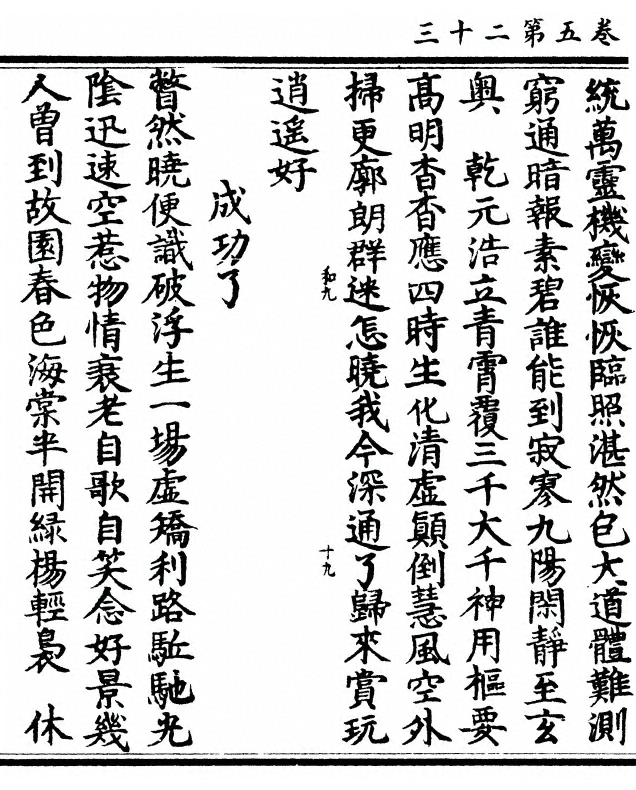 卷五第二十三
統萬靈機變恢恢臨照湛然包大道體難測
窮通暗報素碧誰能到寂寥九陽閑靜至玄
奥 乾元浩立青霄覆三千大千神用樞要
髙明杳杳應四時生化清虛顛倒慧風空外
掃更廓朗群迷怎曉我今深通了歸來賞玩
和九
十九
逍遥好
成功了
瞥然曉便識破浮生一場虛矯利路駈馳光
陰迅速空惹物情衰老自歌自笑念好景幾
人曾到故園春色海棠半開緑楊輕裊 休